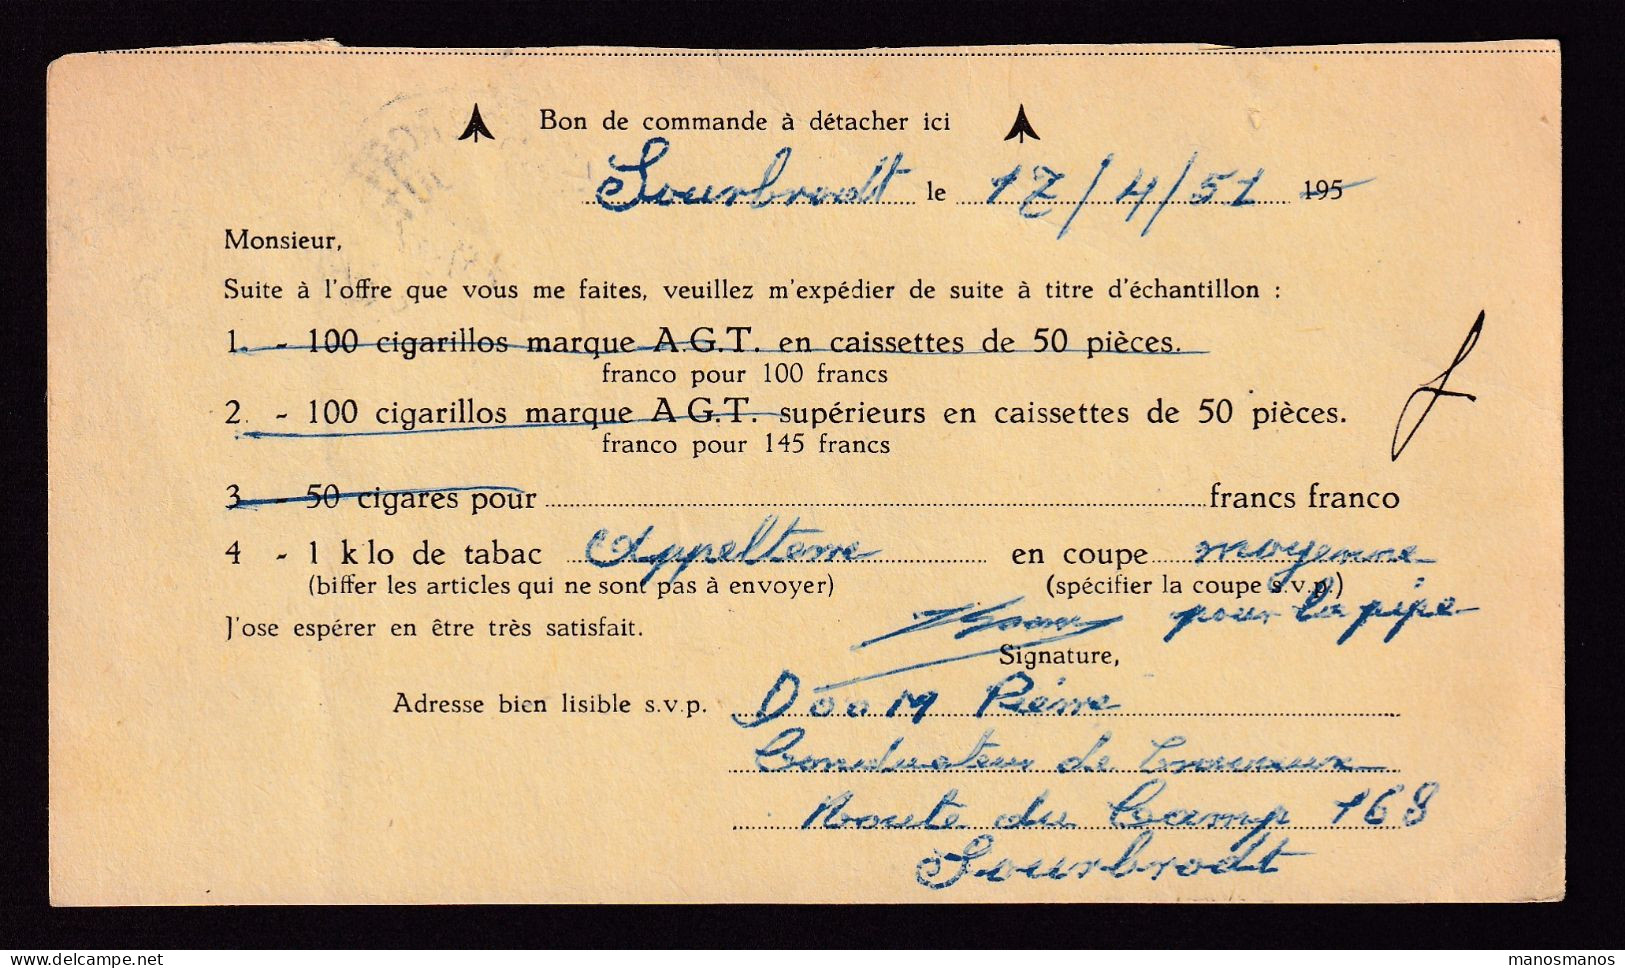 Bon de commande à détacher ici
Sourbrodt le 17/4/51 195
Monsieur,
Suite à l'offre que vous me faites, veuillez m'expédier de suite à titre d'échantillon :
1. - 100 cigarillos marque A.G.T. en caissettes de 50 pièces.
franco pour 100 francs
2. - 100 cigarillos marque A G.T. supérieurs en caissettes de 50 pièces.
franco pour 145 francs
3 - 50 cigares pour francs franco
4 - 1 k lo de tabac Appelterre en coupe moyenne
(biffer les articles qui ne sont pas à envoyer) (spécifier la coupe s.v.p.)
pour la pipe
J'ose espérer en être très satisfait.
Signature,
Adresse bien lisible s.v.p. Doom Pierre
Conducteur de Travaux
Route du Camp 168
Sourbrodt
delcampe.net
manosmanos